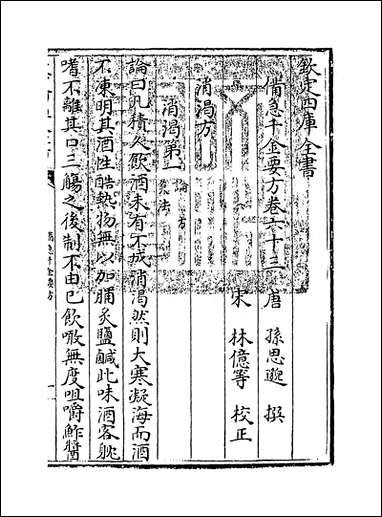 欽定四庫全書
備急千金要方卷六十三
唐 孫思邈 撰
宋 林億等 校正
消渴方
消渴第一
論曰凡積久飲酒未有不成消渴然則大寒凝海而酒
不凍明其酒性酷熱物無以加脯炙鹽鹹此味酒客躭
嗜不離其口三觴之後制不由已飲噉無度咀嚼鮓醬